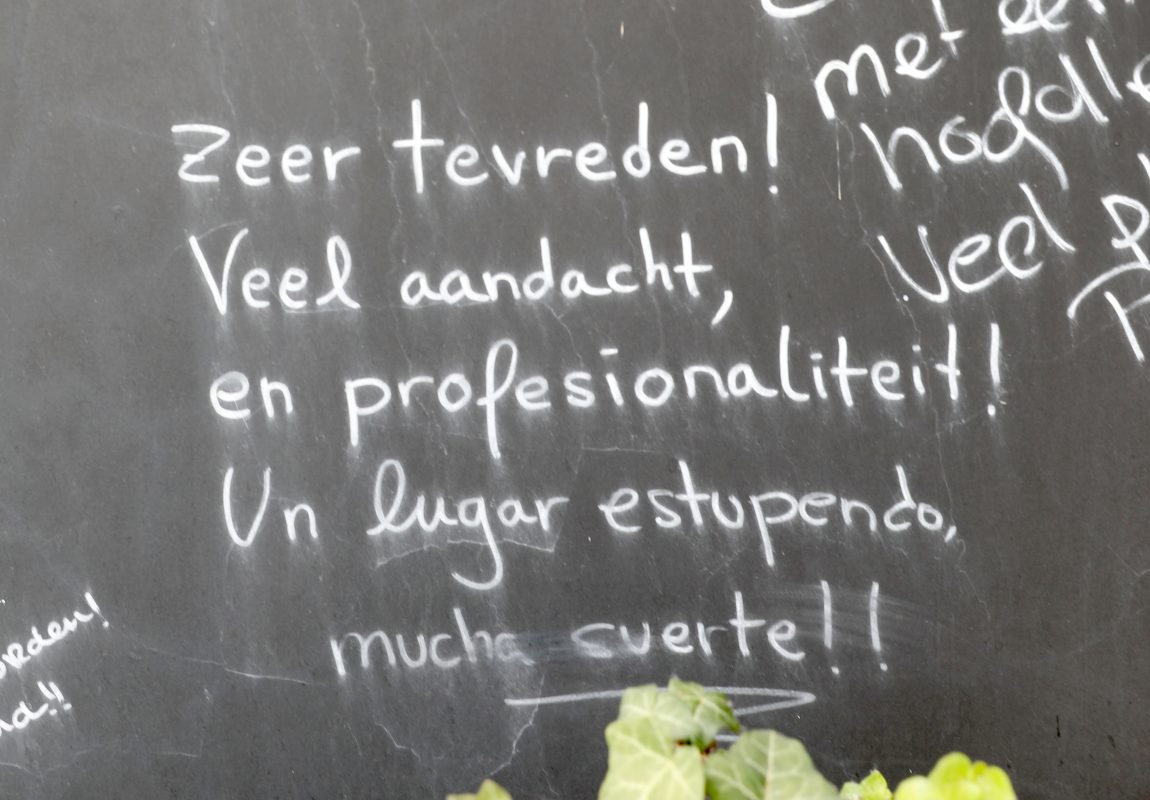 Zeer tevreden!
Veel aandacht,
en profesionaliteit!
Un lugar estupendo,
mucha suerte!!
met een
veel